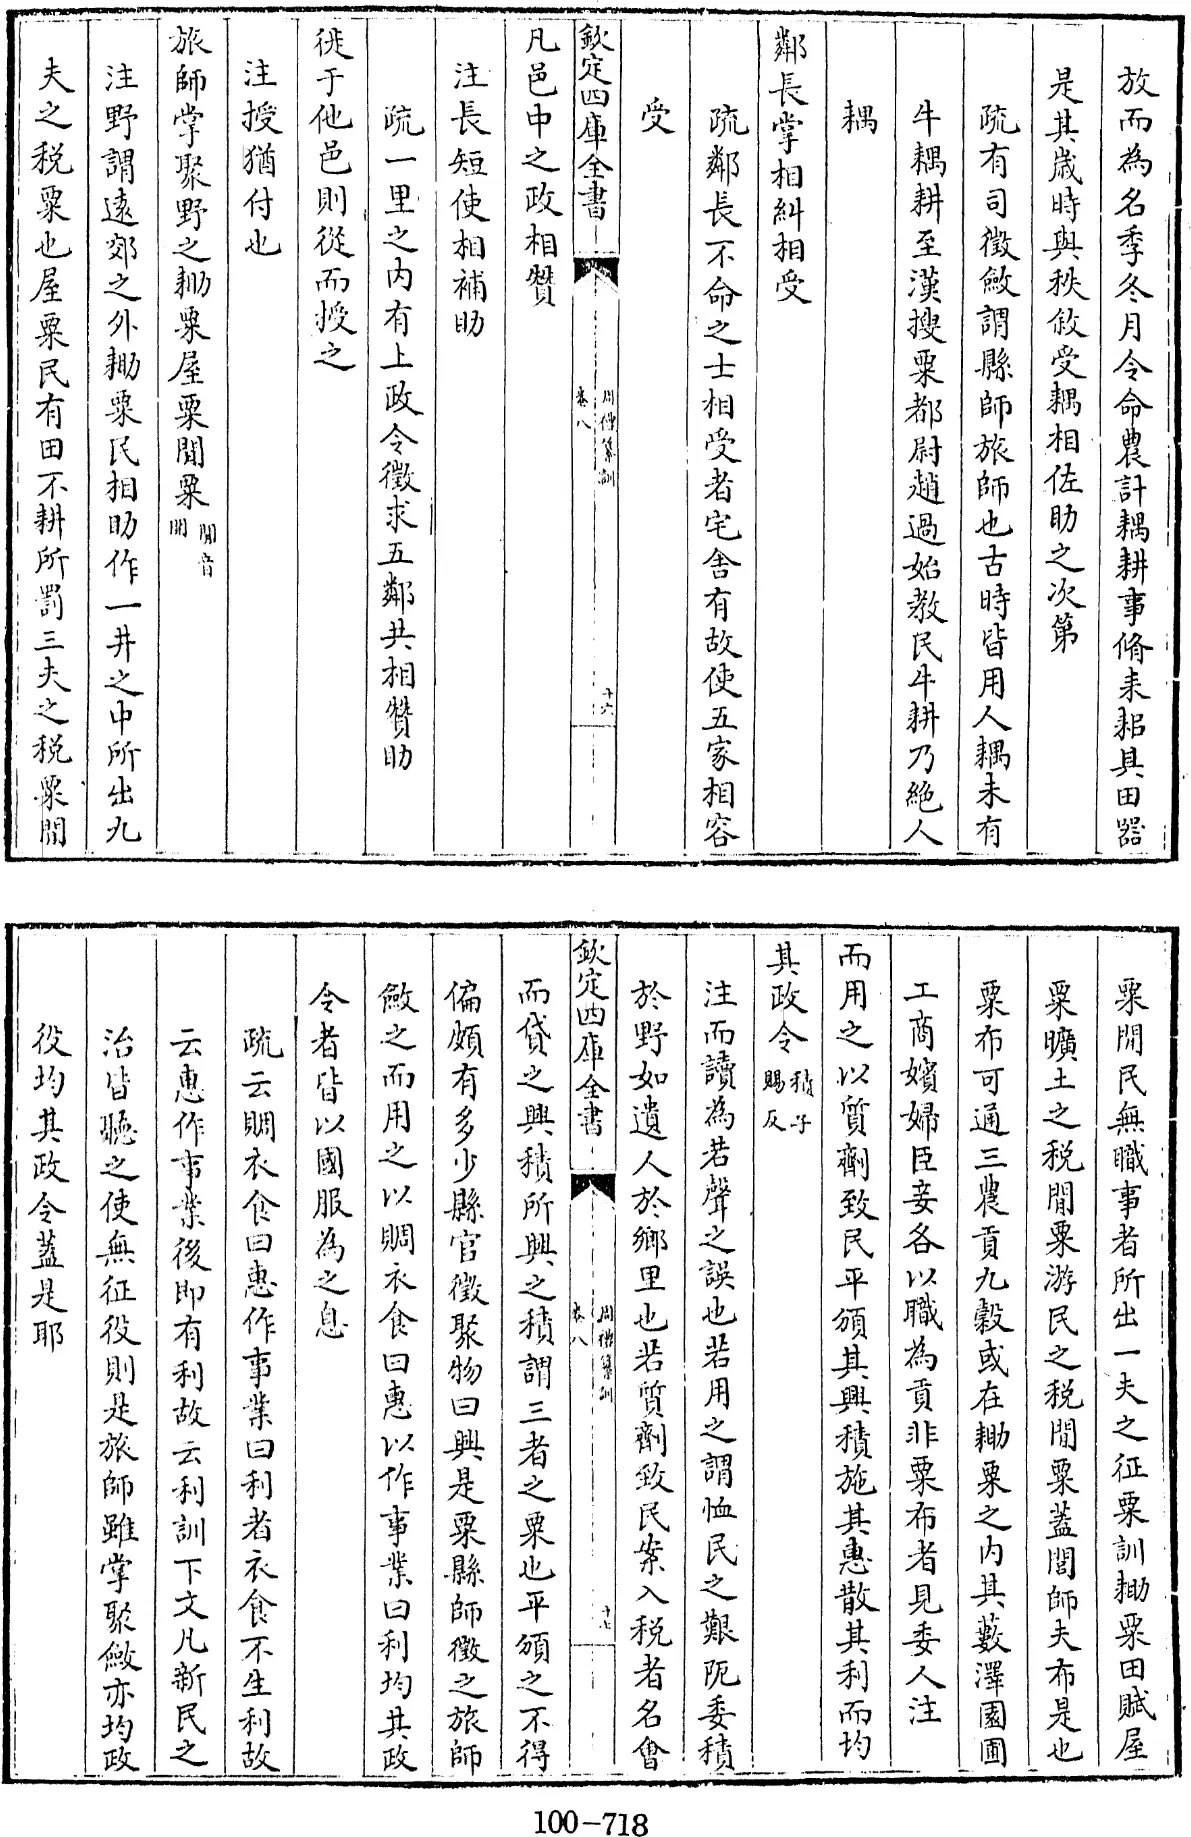 放而為名季冬月令命農計耦耕事脩耒耜具田器
是其歲時與秩敘受耦相佐助之次第
疏有司徵斂謂縣師旅師也古時皆用人耦未有
牛耦耕至漢搜粟都尉趙過始教民牛耕乃絶人
耦
鄰長掌相糾相受
疏鄰長不命之士相受者宅舍有故使五家相容
受
欽定四庫全書
周禮纂訓
卷八
十六
凡邑中之政相贊
注長短使相補助
疏一里之内有上政令徵求五鄰共相贊助
徙于他邑則從而授之
注授猶付也
旅師掌聚野之耡粟屋粟閒粟
閒音
閒
注野謂遠郊之外耡粟民相助作一井之中所出九
夫之税粟也屋粟民有田不耕所罰三夫之税粟閒
粟閒民無職事者所出一夫之征粟訓耡粟田賦屋
粟曠土之税閒粟游民之税閒粟蓋閭師夫布是也
粟布可通三農貢九穀或在耡粟之内其藪澤園圃
工商嬪婦臣妾各以職為貢非粟布者見委人注
而用之以質劑致民平頒其興積施其惠散其利而均
其政令
積子
賜反
注而讀為若聲之誤也若用之謂恤民之艱阨委積
於野如遺人於鄉里也若質劑致民案入税者名會
欽定四庫全書
周禮纂訓
卷八
十七
而貸之興積所興之積謂三者之粟也平頒之不得
偏頗有多少縣官徵聚物曰興是粟縣師徵之旅師
斂之而用之以賙衣食曰惠以作事業曰利均其政
令者皆以國服為之息
疏云賙衣食曰惠作事業曰利者衣食不生利故
云惠作事業後即有利故云利訓下文凡新民之
治皆聽之使無征役則是旅師雖掌聚斂亦均政
役均其政令蓋是耶
100-718